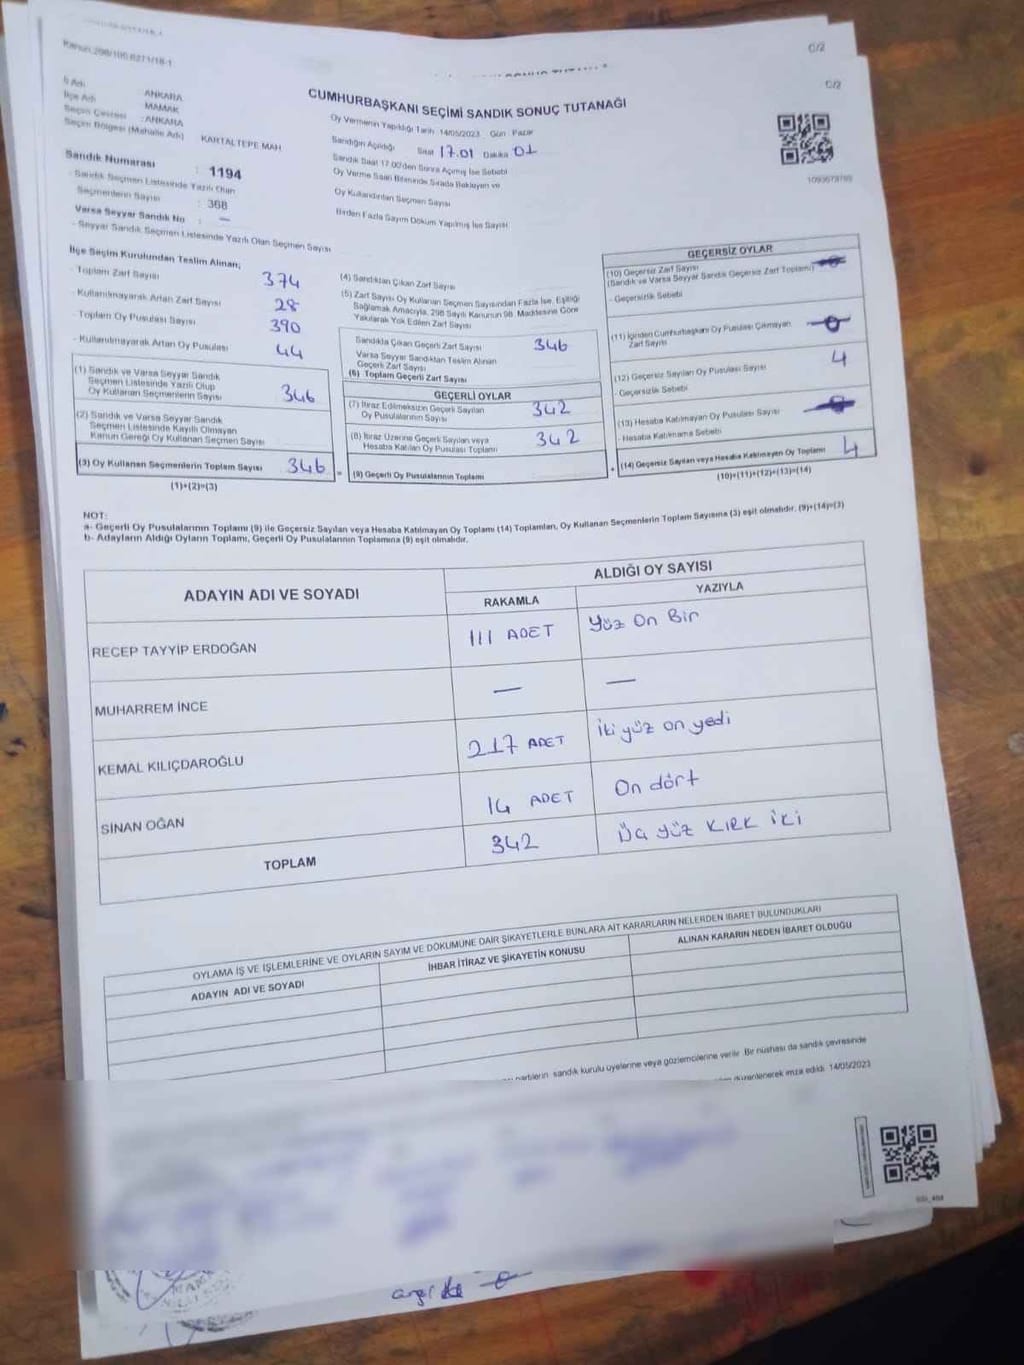 C/2
Kanun:298/105,6271/18-1
C/2
İl Adı : ANKARA
İlçe Adı : MAMAK
Seçim Çevresi : ANKARA
Seçim Bölgesi (Mahalle Adı) KARTALTEPE MAH
Sandık Numarası : 1194
- Sandık Seçmen Listesinde Yazılı Olan
Seçmenlerin Sayısı : 368
Varsa Seyyar Sandık No : —
- Seyyar Sandık Seçmen Listesinde Yazılı Olan Seçmen Sayısı
CUMHURBAŞKANI SEÇİMİ SANDIK SONUÇ TUTANAĞI
Oy Vermenin Yapıldığı Tarih 14/05/2023 Gün Pazar
Sandığın Açıldığı Saat 17.01 Dakika 01
Sandık Saat 17.00'den Sonra Açılmış İse Sebebi
Oy Verme Saati Bitiminde Sırada Bekleyen ve
Oy Kullandırılan Seçmen Sayısı
Birden Fazla Sayım Döküm Yapılmış İse Sayısı
İlçe Seçim Kurulundan Teslim Alınan;
- Toplam Zarf Sayısı 374
- Kullanılmayarak Artan Zarf Sayısı 28
- Toplam Oy Pusulası Sayısı 390
- Kullanılmayarak Artan Oy Pusulası 44
(1) Sandık ve Varsa Seyyar Sandık
Seçmen Listesinde Yazılı Olup
Oy Kullanan Seçmenlerin Sayısı 346
(2) Sandık ve Varsa Seyyar Sandık
Seçmen Listesinde Kayıtlı Olmayan
Kanun Gereği Oy Kullanan Seçmen Sayısı
(3) Oy Kullanan Seçmenlerin Toplam Sayısı 346
(1)+(2)=(3)
(4) Sandıktan Çıkan Zarf Sayısı
(5) Zarf Sayısı Oy Kullanan Seçmen Sayısından Fazla İse, Eşitliği
Sağlamak Amacıyla, 298 Sayılı Kanunun 98. Maddesine Göre
Yakılarak Yok Edilen Zarf Sayısı
Sandıkta Çıkan Geçerli Zarf Sayısı 346
Varsa Seyyar Sandıktan Teslim Alınan
Geçerli Zarf Sayısı
(6) Toplam Geçerli Zarf Sayısı
GEÇERLİ OYLAR
(7) İtiraz Edilmeksizin Geçerli Sayılan
Oy Pusulalarının Sayısı 342
(8) İtiraz Üzerine Geçerli Sayılan veya
Hesaba Katılan Oy Pusulası Toplamı 342
(9) Geçerli Oy Pusulalarının Toplamı
GEÇERSİZ OYLAR
(10) Geçersiz Zarf Sayısı
(Sandık ve Varsa Seyyar Sandık Geçersiz Zarf Toplamı)
- Geçersizlik Sebebi
(11) İçinden Cumhurbaşkanı Oy Pusulası Çıkmayan
Zarf Sayısı 0
(12) Geçersiz Sayılan Oy Pusulası Sayısı 4
- Geçersizlik Sebebi
(13) Hesaba Katılmayan Oy Pusulası Sayısı
- Hesaba Katılmama Sebebi
(14) Geçersiz Sayılan veya Hesaba Katılmayan Oy Toplamı 4
(10)+(11)+(12)+(13)=(14)
NOT:
a- Geçerli Oy Pusulalarının Toplamı (9) ile Geçersiz Sayılan veya Hesaba Katılmayan Oy Toplamı (14) Toplamları, Oy Kullanan Seçmenlerin Toplam Sayısına (3) eşit olmalıdır. (9)+(14)=(3)
b- Adayların Aldığı Oyların Toplamı, Geçerli Oy Pusulalarının Toplamına (9) eşit olmalıdır.
ADAYIN ADI VE SOYADI
ALDIĞI OY SAYISI
RAKAMLA YAZIYLA
RECEP TAYYİP ERDOĞAN 111 ADET Yüz On Bir
MUHARREM İNCE — —
KEMAL KILIÇDAROĞLU 217 ADET İki yüz on yedi
SİNAN OĞAN 14 ADET On dört
TOPLAM 342 Üç yüz KIRK İKİ
OYLAMA İŞ VE İŞLEMLERİNE VE OYLARIN SAYIM VE DÖKÜMÜNE DAİR ŞİKAYETLERLE BUNLARA AİT KARARLARIN NELERDEN İBARET BULUNDUKLARI
ADAYIN ADI VE SOYADI İHBAR İTİRAZ VE ŞİKAYETİN KONUSU ALINAN KARARIN NEDEN İBARET OLDUĞU
partilerin sandık kurulu üyelerine veya gözlemcilerine verilir. Bir nüshası da sandık çevresinde
düzenlenerek imza edildi. 14/05/2023